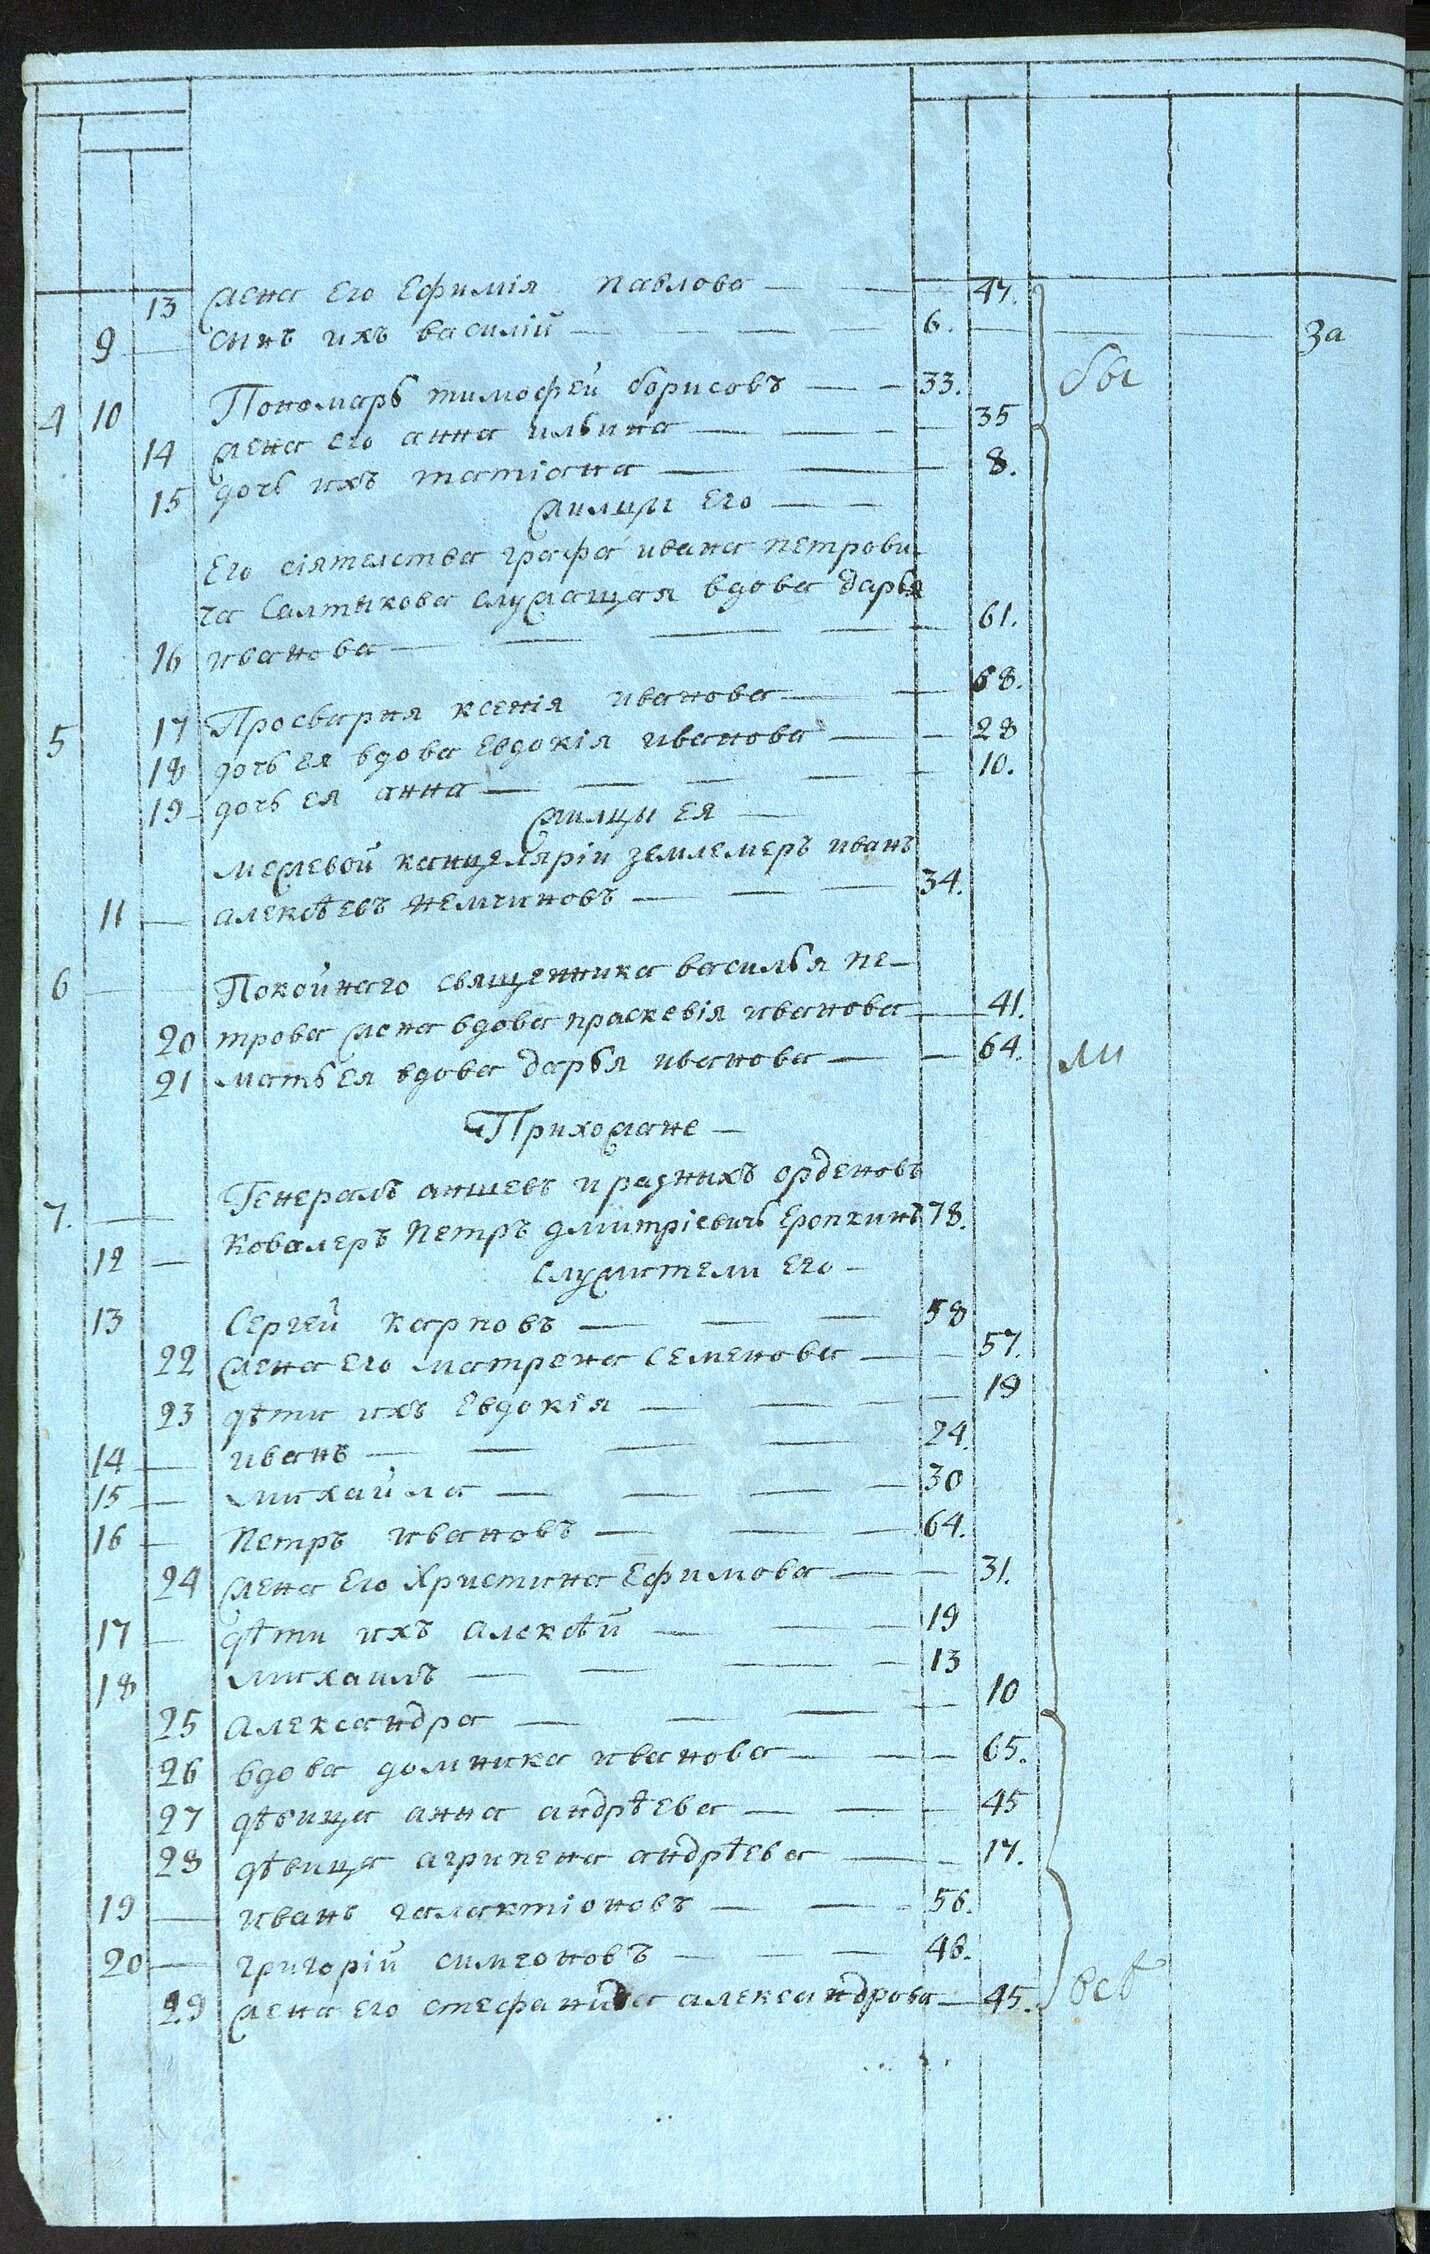 13 жена Его Ефимія Павлова — 47.
9 — сынъ ихъ василій — 6. — За
бы
4 10 Пономарь тимофей борисовъ — 33.
14 жена его анна ильина — 35
15 дочь ихъ татіана — 8.
жильцы Его —
Его сіятелства графа ивана петрови-
ча Салтыкова служащая вдова дарья
16 иванова — 61.
5 17 Просварня ксенія иванова — 68.
18 дочь ея вдова Евдокія иванова — 28
19 дочь ея анна — 10.
жилцы ея —
межевой канцеляріи землемеръ иванъ
11 — алексѣевъ немчиновъ — 34.
6 — Покойнаго священника василья пе-
20 трова жена вдова праскевія иванова — 41.
21 мать ея вдова дарья иванова — 64.
ли
Прихожане —
7. — Генералъ аншевъ и разныхъ орденовъ
12 — Ковалеръ Петръ дмитріевичь Еропкинъ 78.
Служители Его —
13 Сергей карповъ — 58
22 жена его матрена Семенова — 57.
23 дѣти ихъ Евдокія — 19
14 — иванъ — 24.
15 — михайла — 30
16 — Петръ ивановъ — 64.
24 жена Его Христина Ефимова — 31.
17 — дѣти ихъ алексѣй — 19
18 михаилъ — 13
25 александра — 10
26 вдова домника иванова — 65.
27 дѣвица анна андрѣева — 45
28 дѣвица агрипена андрѣева — 17.
19 — иванъ галактіоновъ — 56.
20 — григорій симеоновъ — 46.
29 жена его стефанида александрова — 45.
всѣ